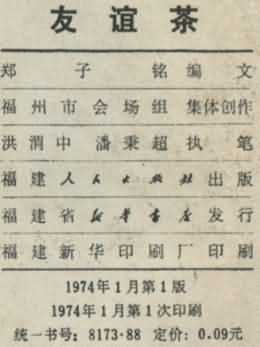 友谊茶
郑子铭编文
福州市会场组 集体创作
洪渭中 潘秉超执笔
福建人民出版社出版
福建省新华书店发行
福建新华印刷厂印刷
1974年1月第1版
1974年1月第1次印刷
统一书号：8173·88 定价：0.09元